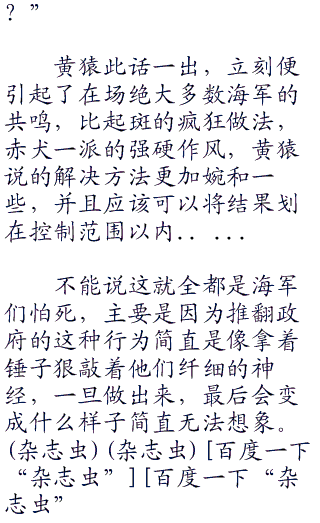 ？”
黄猿此话一出，立刻便
引起了在场绝大多数海军的
共鸣，比起斑的疯狂做法，
赤犬一派的强硬作风，黄猿
说的解决方法更加婉和一
些，并且应该可以将结果划
在控制范围以内．．．．．
不能说这就全都是海军
们怕死，主要是因为推翻政
府的这种行为简直是像拿着
锤子狠敲着他们纤细的神
经，一旦做出来，最后会变
成什么样子简直无法想象。
(杂志虫)(杂志虫)[百度一下
“杂志虫”][百度一下“杂
志虫”